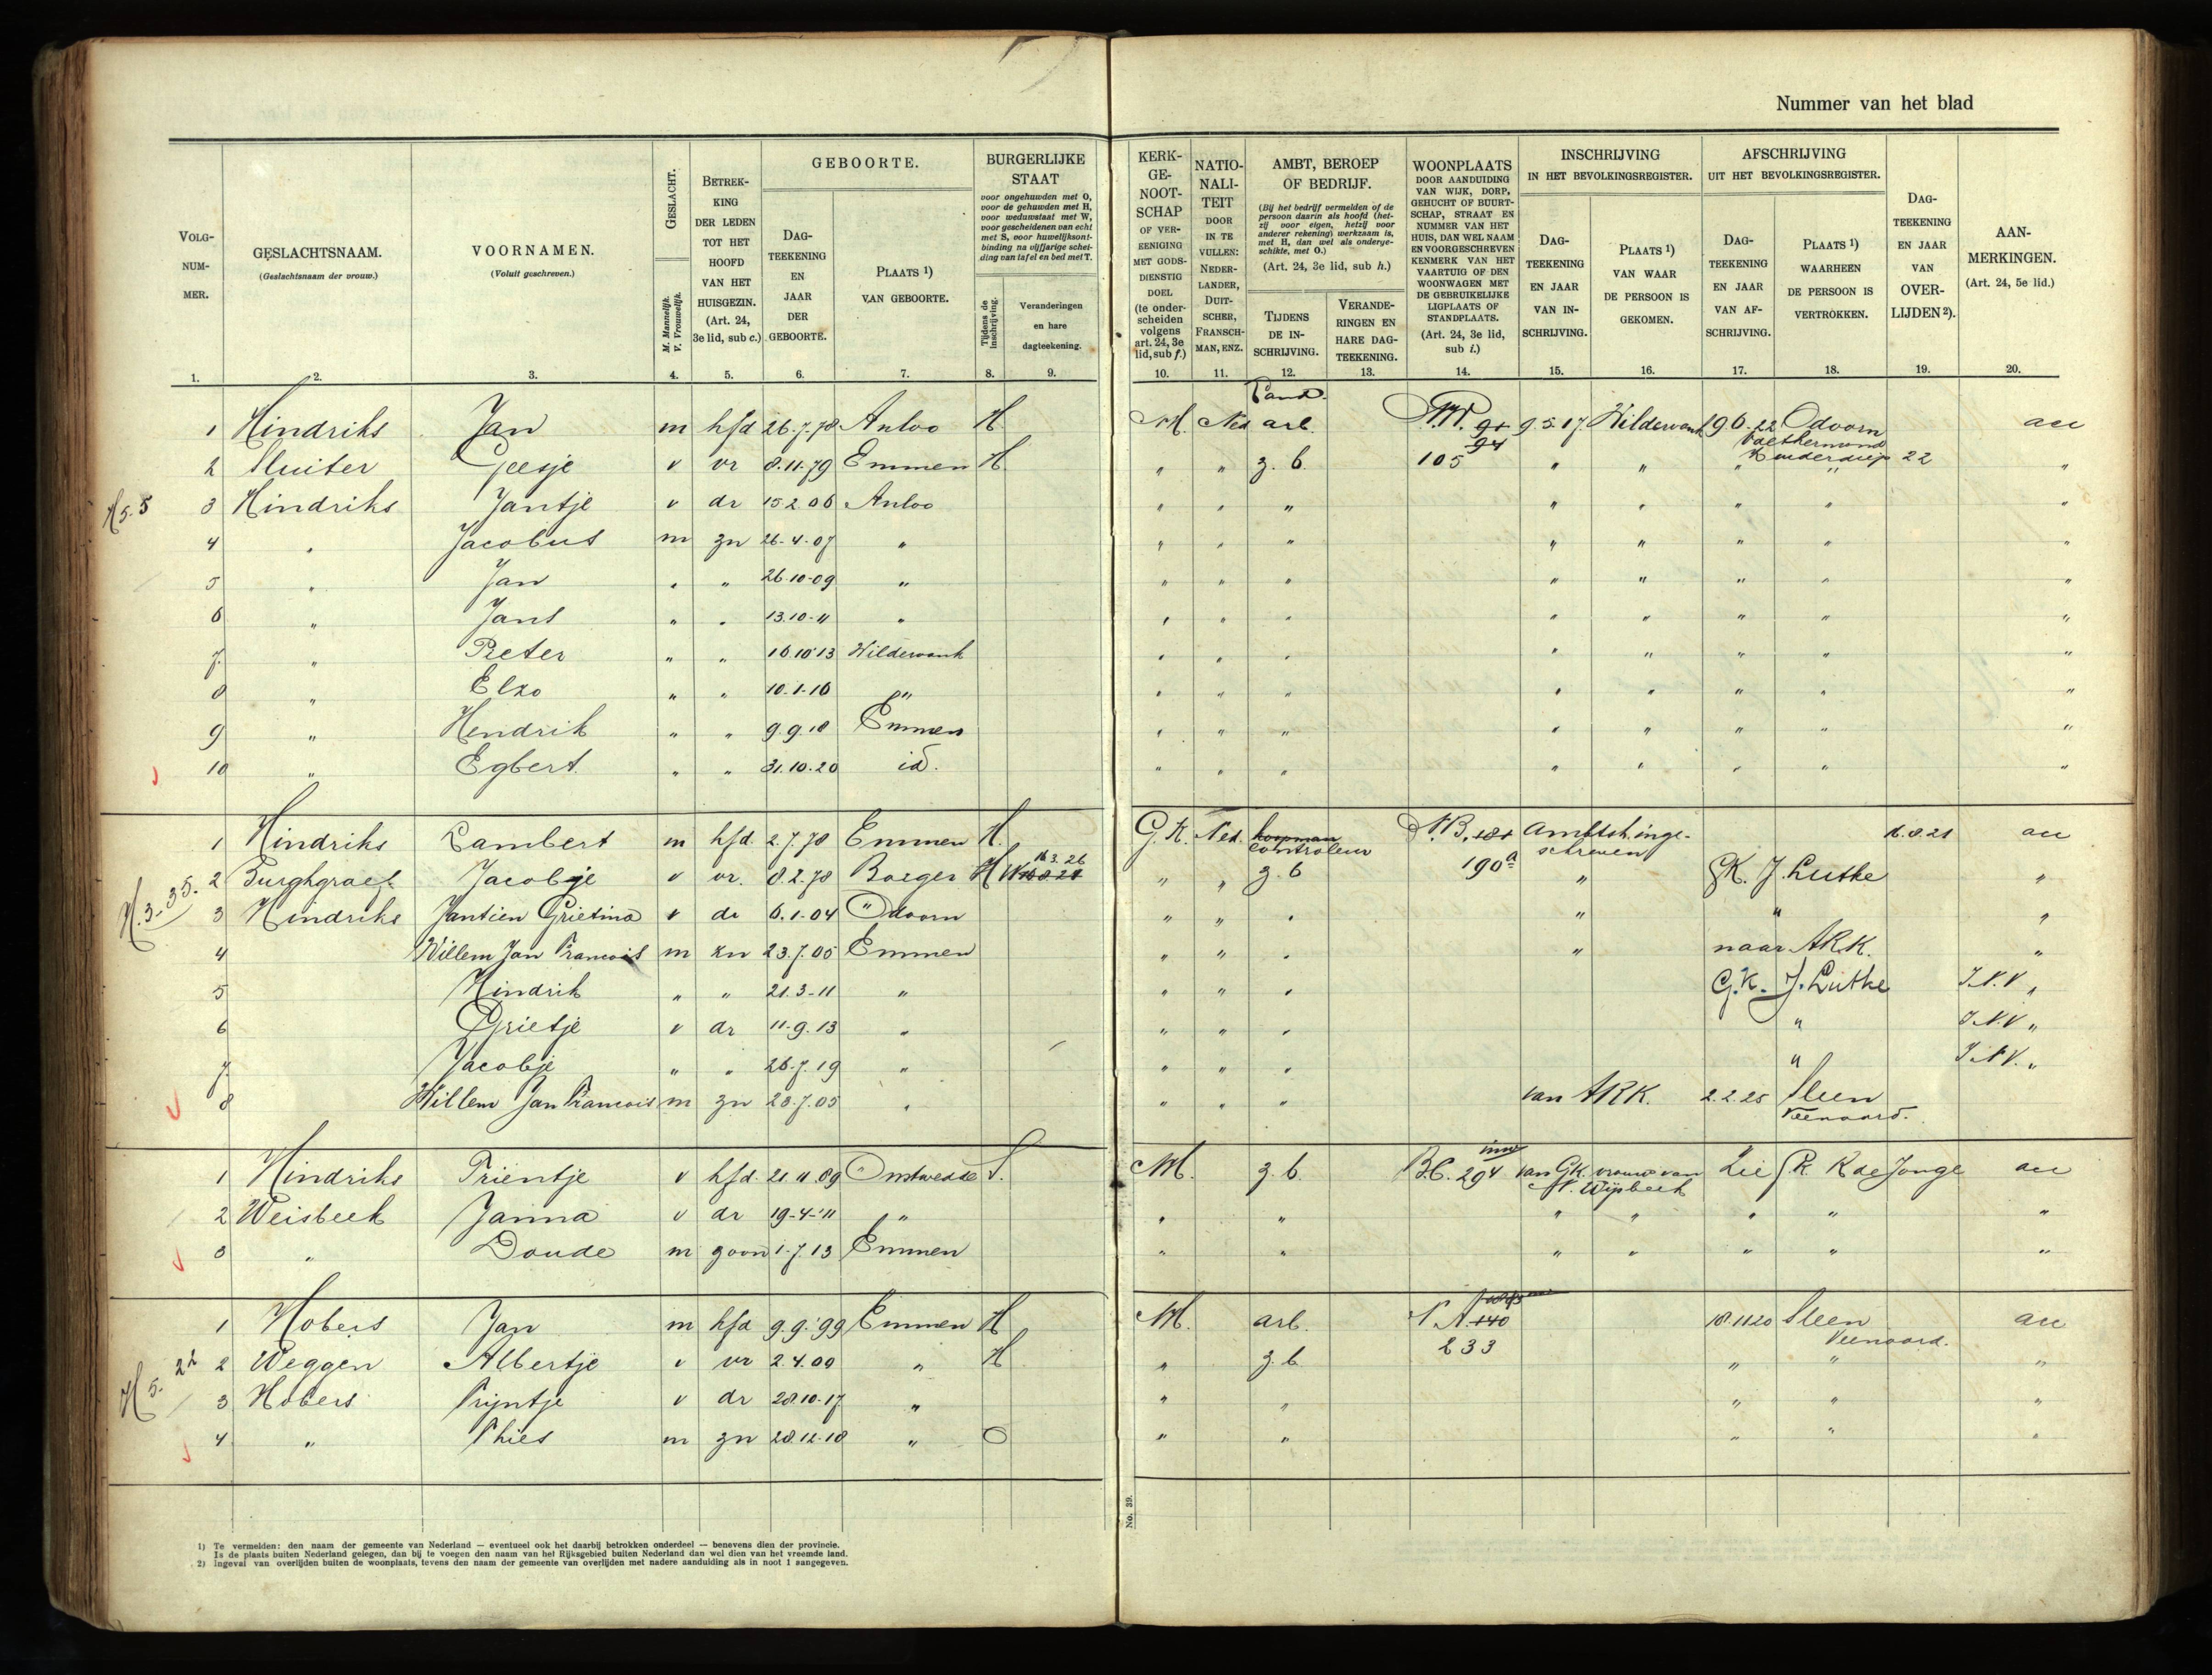 Nummer van het blad
VOLG-NUM-MER.
GESLACHTSNAAM.
(Geslachtsnaam der vrouw.)
VOORNAMEN.
(Voluit geschreven.)
GESLACHT.
M. Mannelijk.
V. Vrouwelijk.
BETREK-
KING
DER LEDEN
TOT HET
HOOFD
VAN HET
HUISGEZIN.
(Art. 24,
3e lid, sub c.)
GEBOORTE.
DAG-
TEEKENING
EN
JAAR
DER
GEBOORTE.
PLAATS 1)
VAN GEBOORTE.
BURGERLIJKE
STAAT
voor ongehuwden met O,
voor de gehuwden met H,
voor weduwstaat met W,
voor gescheidenen van echt
met S, voor huwelijksont-
binding na vijfjarige schei-
ding van tafel en bed met T.
Tijdens de
inschrijving.
Veranderingen
en hare
dagteekening.
KERK-
GE-
NOOT-
SCHAP
OF VER-
EENIGING
MET GODS-
DIENSTIG
DOEL
(te onder-
scheiden
volgens
art. 24, 3e
lid, sub f.)
NATIO-
NALI-
TEIT
DOOR
IN TE
VULLEN:
NEDER-
LANDER,
DUIT-
SCHER,
FRANSCH-
MAN, ENZ.
AMBT, BEROEP
OF BEDRIJF.
(Bij het bedrijf vermelden of de
persoon daarin als hoofd (het-
zij voor eigen, hetzij voor
anderer rekening) werkzaam is,
met H, dan wel als onderge-
schikte, met O.)
(Art. 24, 3e lid, sub h.)
TIJDENS
DE IN-
SCHRIJVING.
VERANDE-
RINGEN EN
HARE DAG-
TEEKENING.
WOONPLAATS
DOOR AANDUIDING
VAN WIJK, DORP,
GEHUCHT OF BUURT-
SCHAP, STRAAT EN
NUMMER VAN HET
HUIS, DAN WEL NAAM
EN VOORGESCHREVEN
KENMERK VAN HET
VAARTUIG OF DEN
WOONWAGEN MET
DE GEBRUIKELIJKE
LIGPLAATS OF
STANDPLAATS.
(Art. 24, 3e lid,
sub i.)
INSCHRIJVING
IN HET BEVOLKINGSREGISTER.
DAG-
TEEKENING
EN JAAR
VAN IN-
SCHRIJVING.
PLAATS 1)
VAN WAAR
DE PERSOON IS
GEKOMEN.
AFSCHRIJVING
UIT HET BEVOLKINGSREGISTER.
DAG-
TEEKENING
EN JAAR
VAN AF-
SCHRIJVING.
PLAATS 1)
WAARHEEN
DE PERSOON IS
VERTROKKEN.
DAG-
TEEKENING
EN JAAR
VAN
OVER-
LIJDEN 2).
AAN-
MERKINGEN.
(Art. 24, 5e lid.)
1. 2. 3. 4. 5. 6. 7. 8. 9. 10. 11. 12. 13. 14. 15. 16. 17. 18. 19. 20.
1 Hindriks Jan m hfd 26.7.78 Anloo H NH. Ned arb. 94 9.5.17 Wildervank 9 6.22 Odoorn
Valthermond
2 Sluiter Geesje v vr 8.11.79 Emmen H " " z. b. 105 " " " Zuiderdiep 22 "
H 5.5 3 Hindriks Jantje v dr 15.2.06 Anloo " " " " " " " "
4 " Jacobus m zn 26.4.07 " " " " " " " " "
5 " Jan " " 26.10-09 " " " " " " " " "
6 " Jans " " 13.10-11 " " " " " " " " "
7. " Pieter " " 16.10'13 Wildervank " " " " " " " "
8 " Elzo " " 10.1-16 " " " " " " " " "
9 " Hendrik " " 9.9.18 Emmen " " " " " " " "
10 " Egbert. " " 31.10.20 id. " " " " " " " "
1 Hindriks Lambert m hfd. 2.7.78 Emmen H. G.K. Ned. koopman controleur N.B. Ambtsh. inge-
schreven
H. 3-35. 2 Burghgraef Jacobje v vr. 8.2.78 Borger H " " z. b 190a " GK. J. Lutke "
3 Hindriks Jantien Grietina v dr 6.1-04 Odoorn " " " " " "
4 Willem Jan Francois m zn 23.7.05 Emmen " " " " naar ARK. "
5 Hindrik " " 21.3-11 " " " " G.K. J. Lutke I.N.V "
6 Grietje v dr 11-9.13 " " " " " I.N.V "
7. Jacobje " " 26.7.19 " " " " " I.N.V. "
8 Willem Jan Francois m zn 23.7.05 " " " " van ARK. 2.2.25 Sleen
Veenoord.
1 Hindriks Trientje v hfd. 21.11.89 Onstwedde S. NH. z. b. B.C. 294 van GK. vrouw van Zie GK K de Jonge
N. Wijsbeek
2 Weisbeek Janna v dr 19-4-'11 " " " " " " " "
3 " Doude m zoon 1-7.13 Emmen " " " " " " "
1 Hobers Jan m hfd 9.9.'99 Emmen H NH. arb. N A 140 18.11 20 Sleen
Veenoord.
H 5. 2 Weggen Albertje v vr 2.4.00 " H " z. b. 233 " " "
3 Hobers Trijntje v dr 28.10.17 " " " " " "
4 " Thies m zn 28.12.18 " O " " " " "
No. 39.
1) Te vermelden: den naam der gemeente van Nederland — eventueel ook het daarbij betrokken onderdeel — benevens dien der provincie.
Is de plaats buiten Nederland gelegen, dan bij te voegen den naam van het Rijksgebied buiten Nederland dan wel dien van het vreemde land.
2) Ingeval van overlijden buiten de woonplaats, tevens den naam der gemeente van overlijden met nadere aanduiding als in noot 1 aangegeven.